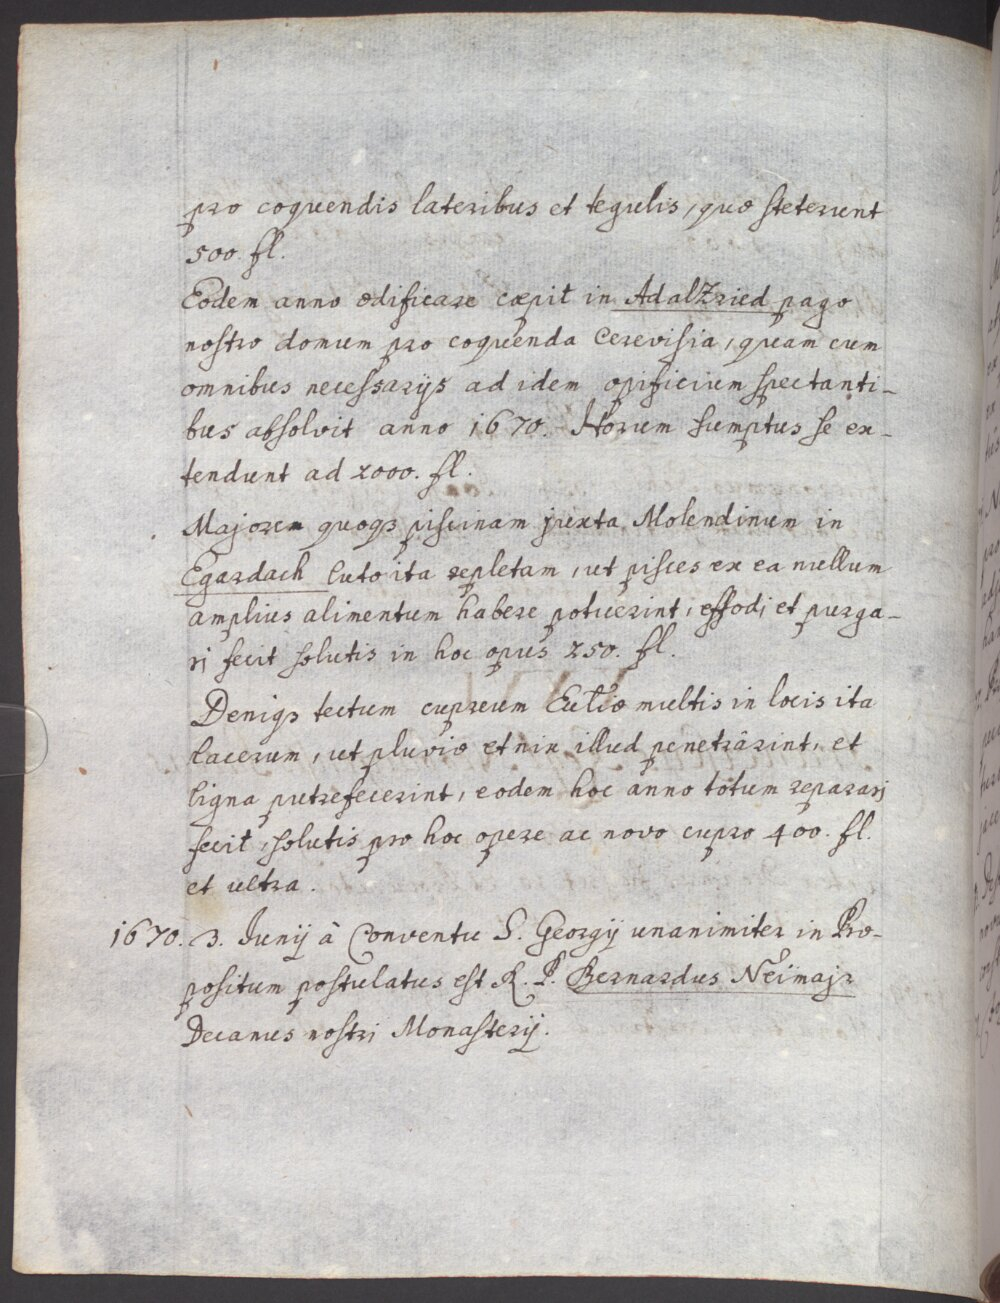 pro coquendis lateribus et tegulis, quæ steterunt
500. fl.
Eodem anno ædificare cæpit in Adalzried pago
nostro domum pro coquenda cerevisia, quam cum
omnibus necessarijs ad idem opificium spectanti-
bus absolvit anno 1670. Horum sumptus se ex-
tendunt ad 2000. fl.
Majorem quoqз piscinam juxta Molendinum in
Egardach luto ita repletam, ut pisces ex ea nullum
amplius alimentum habere potuerint, effodi et purga-
ri fecit solutis in hoc opus 250. fl.
Deniqз tectum cupreum Eccliæ multis in locis ita
lacerum, ut pluviæ et nix illud penetrârint, et
ligna putrefecerint, eodem hoc anno totum reparari
fecit, solutis pro hoc opere ac novo cupro 400. fl.
et ultra.
1670. 3. Junij â Conventu S. Georgij unanimiter in Præ-
positum postulatus est R. P. Bernardus Neimajr
Decanus nostri Monasterij.